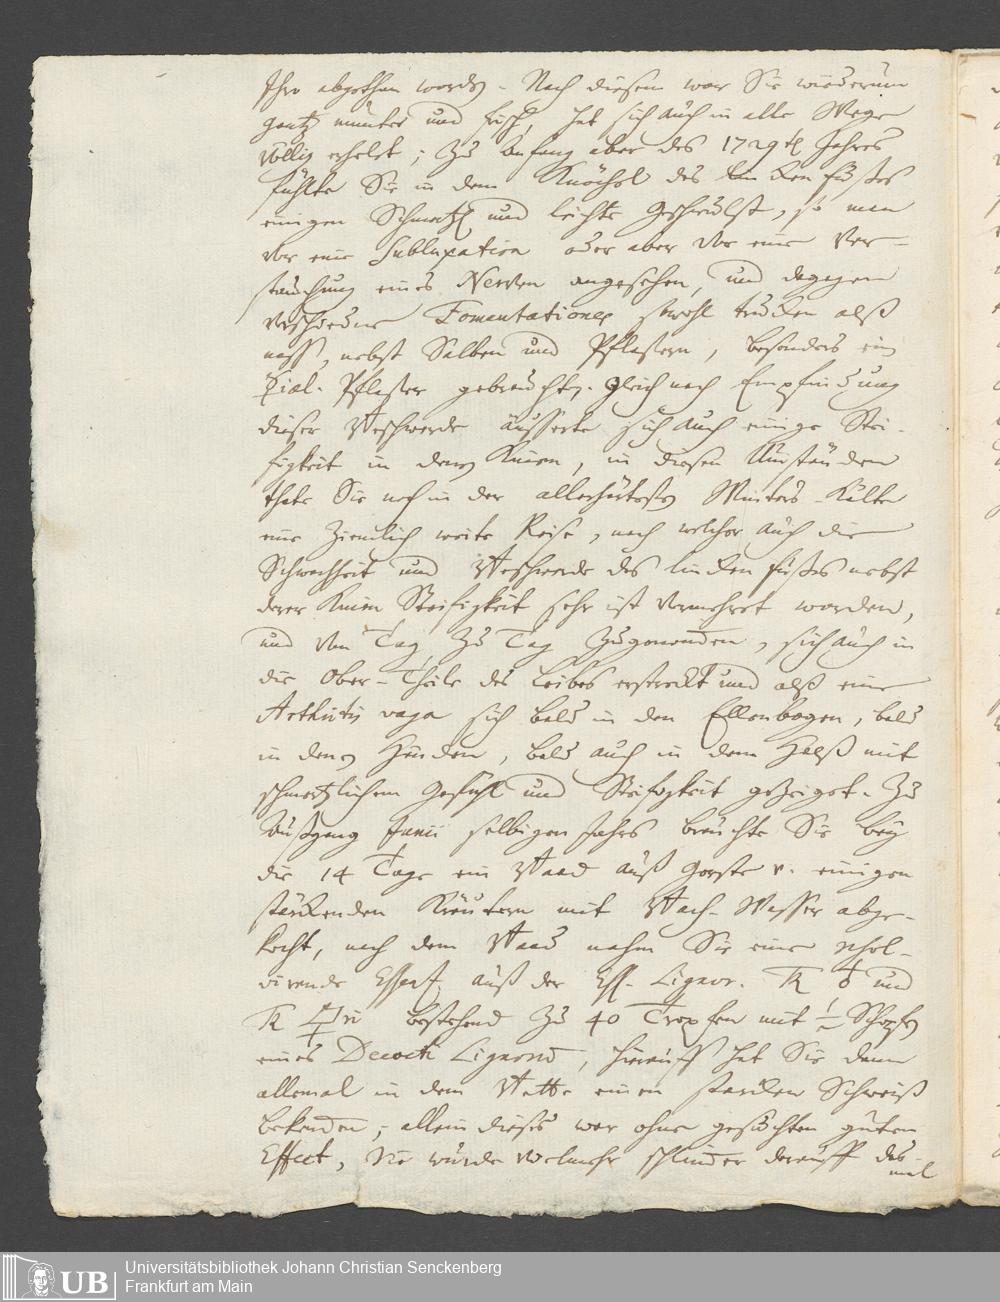 Ihro abgethan worden. Nach diesem war Sie wiederum
gantz munter und frisch, hat sich auch in alle Wege
völlig erholet; zu Anfang aber des 1729ten Jahres
fühlte Sie in dem Knöchel des lincken Fußes
einigen Schmertzen und leichte Geschwulst, so man
vor eine Subluxation oder aber vor eine Ver-
stauchung eines Nerven angesehen, und dagegen
verschiedene Fomentationes sowohl trucken alß
nass, nebst Salben und Pflastern, besonders ein
Pflaster gebrauchten. Gleich nach Empfindung
dieser Beschwerde äusserte sich auch einige Stei-
figkeit in denen Knien, in diesen Umständen
thate Sie noch in der allerhärtesten Winters-Kälte
eine ziemlich weite Reise, nach welcher auch die
Schwachheit und Beschwerde des lincken Fußes nebst
derer Knien Steifigkeit sehr ist vermehret worden,
und von Tag zu Tag zugenommen, sich auch in
die Ober-Theile des Leibes erstreckt und alß eine
Arthritis vaga sich bald in den Ellenbogen, bald
in denen Händen, bald auch in dem Halß mit
schmertzlichem Gefühl und Steifigkeit gezeiget. Zu
Außgang Junii selbigen Jahrs brauchte Sie bey
die 14 Tage ein Baad auß Gerste v. einigen
stärckenden Kräutern mit Bach-Wasser abge-
kocht, nach dem Baad nahm Sie eine
Essent. auß der Ess. Lignor. und
bestehend zu 40 Tropfen mit ½ Schopen
eines Decocti Lignorum, hierauff hat Sie dann
allemal in dem Bette einen starcken Schweiß
bekommen; allein dieses war ohne gesuchten guten
Effect, Sie wurde vielmehr schlimmer darauff
mal
Universitätsbibliothek Johann Christian Senckenberg
Frankfurt am Main
UB